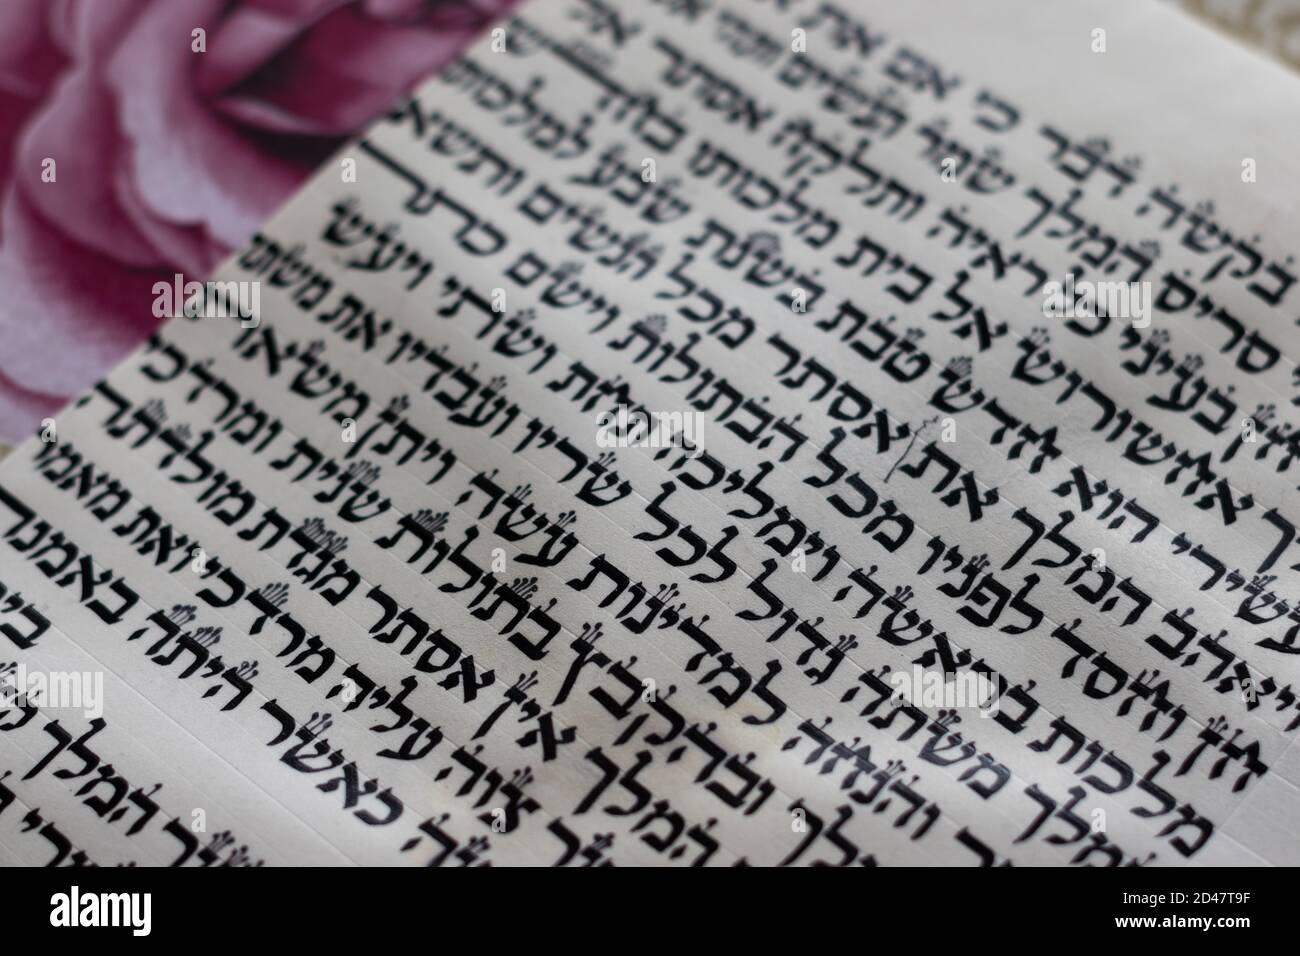 בקשה דבר כי אם את א
סריס המלך שמר הנשים ותהי
חן בעיני כל ראיה ותלקח אסתר אל
אחשורוש אל בית מלכותו בחדש
העשירי הוא חדש טבת בשנת שבע למלכותו
ויאהב המלך את אסתר מכל הנשים ותשא
חן וחסד לפניו מכל הבתולות וישם כתר
מלכות בראשה וימליכה תחת ושתי ויעש
המלך משתה גדול לכל שריו ועבדיו את משתה
והנחה למדינות עשה ויתן משאת
המלך ובהקבץ בתולות שנית ומרדכי
המלך אין אסתר מגדת מולדתה
צוה עליה מרדכי ואת מאמר
כאשר היתה באמנה
המלך
alamy
Image ID: 2D47T9F
www.alamy.com